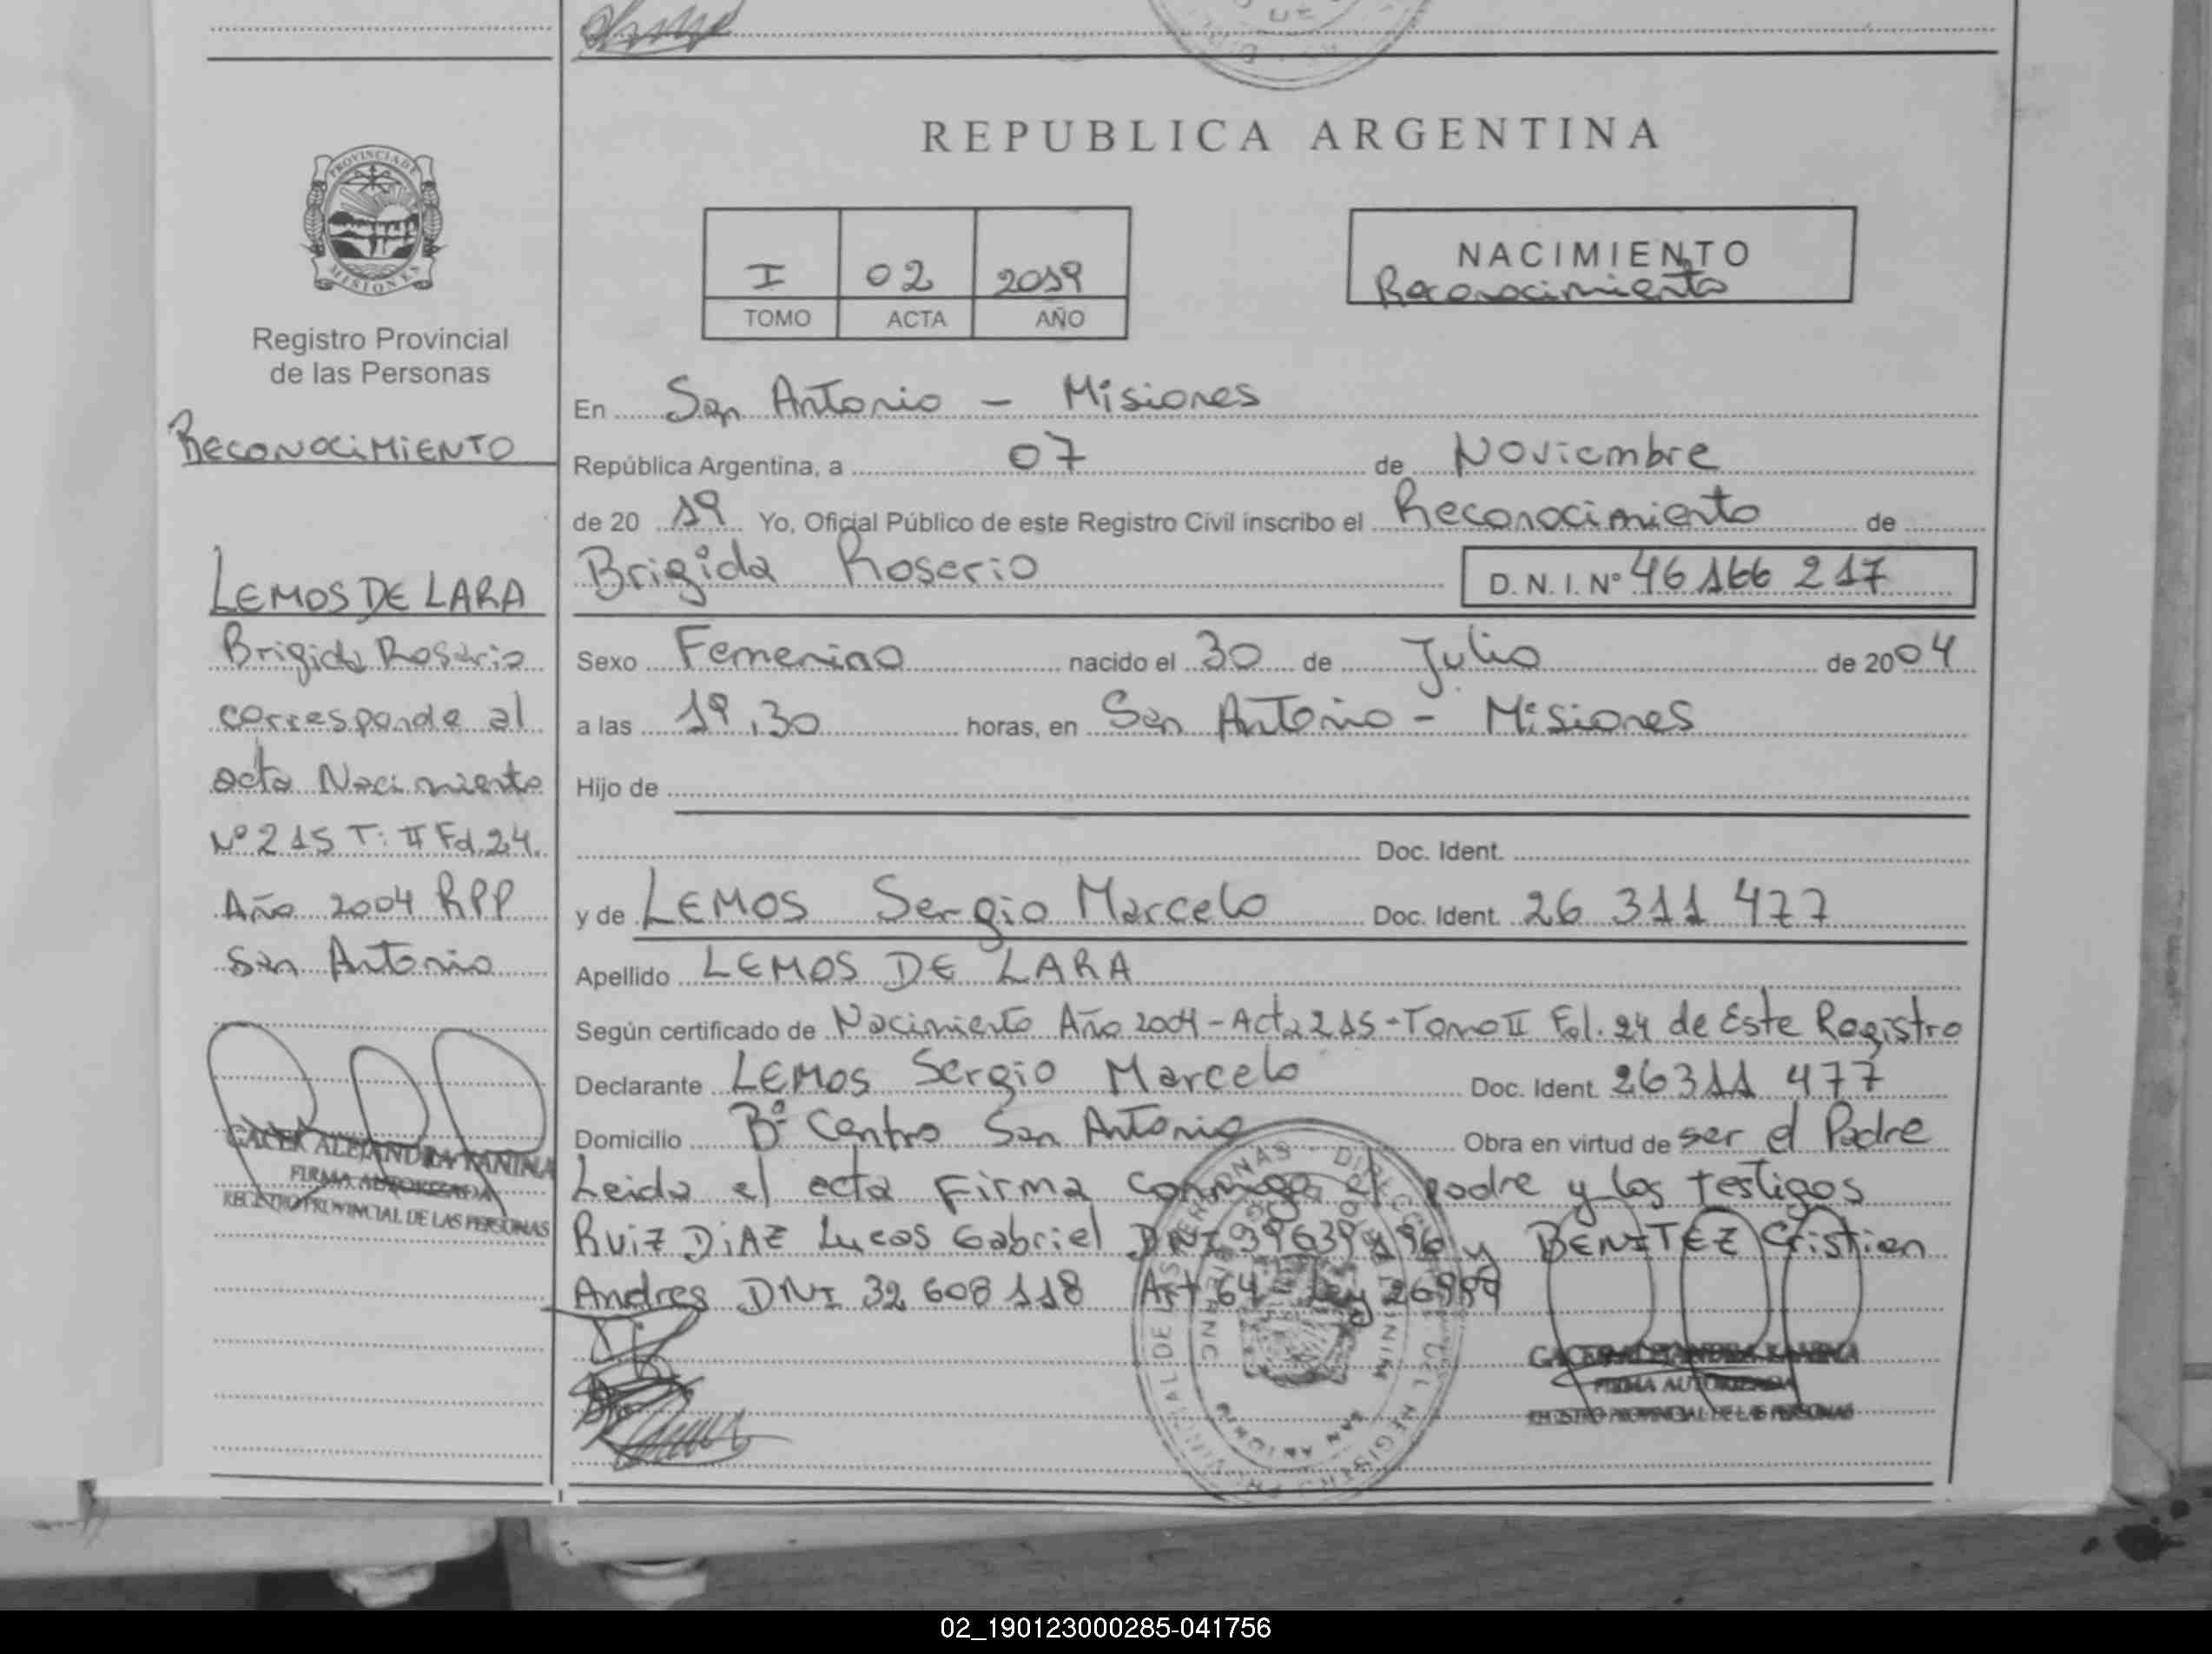 REPUBLICA ARGENTINA
PROVINCIA DE
MISIONES
Registro Provincial
de las Personas
RECONOCIMIENTO
LEMOS DE LARA
Brigida Rosario
corresponde al
acta Nacimiento
Nº 215 T: II Fol. 24.
Año 2004 RPP
San Antonio
GACEK ALEJANDRA KANINA
FIRMA AUTORIZADA
REGISTRO PROVINCIAL DE LAS PERSONAS
I 02 2019
TOMO ACTA AÑO
NACIMIENTO
Reconocimiento
En San Antonio - Misiones
República Argentina, a 07 de Noviembre
de 20 19 Yo, Oficial Público de este Registro Civil inscribo el Reconocimiento de
Brigida Rosario D. N. I. Nº 46 166 217
Sexo Femenino nacido el 30 de Julio de 2004
a las 19,30 horas, en San Antonio - Misiones
Hijo de
Doc. Ident.
y de LEMOS Sergio Marcelo Doc. Ident. 26 311 477
Apellido LEMOS DE LARA
Según certificado de Nacimiento Año 2004 - Acta 215 - Tomo II Fol. 24 de Este Registro
Declarante LEMOS Sergio Marcelo Doc. Ident. 26311 477
Domicilio Bº Centro San Antonio Obra en virtud de ser el Padre
Leida el acta firma conmigo el padre y los testigos
Ruiz DiAZ Lucas Gabriel DNI y BENITEZ Cristian
Andres DNI 32 608 118 Art 64 Ley
FIRMA AUTORIZADA
REGISTRO PROVINCIAL DE LAS PERSONAS
SAN ANTONIO
02_190123000285-041756